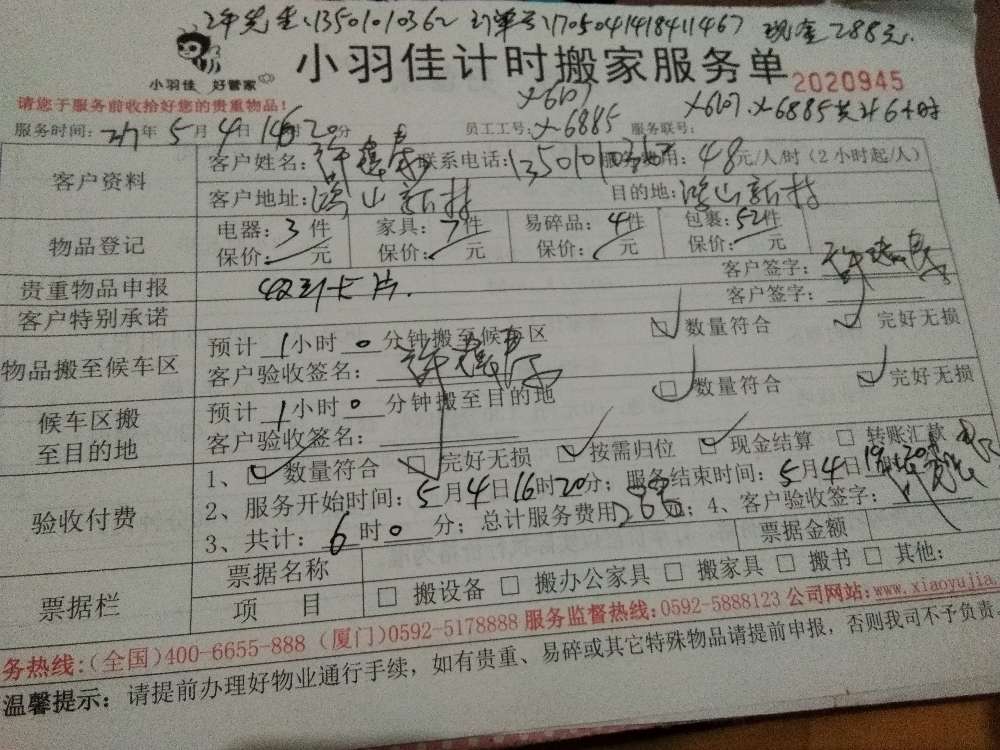 许先生:13501010362 订单号1705041418411467 现金288元.
小羽佳 好管家
小羽佳计时搬家服务单
2020945
请您于服务前收拾好您的贵重物品!
x6107
x6107.x6885共计6小时
服务时间: 17年5月4日16时20分 员工工号: x6885 服务联号:
客户资料
客户姓名: 联系电话: 费用:48元/人/时(2小时起/人)
客户地址: 山新村 目的地: 山新村
物品登记
电器:3件 家具:7件 易碎品:4件 包裹:52件
保价: 元 保价: 元 保价: 元 保价: 元
贵重物品申报 客户签字:
客户特别承诺 客户签字:
物品搬至候车区
预计1小时0分钟搬至候车区 数量符合 完好无损
客户验收签名:
候车区搬至目的地
预计1小时0分钟搬至目的地 数量符合 完好无损
客户验收签名:
验收付费
1、数量符合 完好无损 按需归位 现金结算 转账汇款
2、服务开始时间:5月4日16时20分;服务结束时间:5月4日19时20
3、共计:6时0分;总计服务费用288;4、客户验收签字:
票据栏
票据名称 票据金额
项 目 搬设备 搬办公家具 搬家具 搬书 其他:
务热线:(全国)400-6655-888 (厦门)0592-5178888 服务监督热线:0592-5888123 公司网站:www.xiaoyujia.
温馨提示:请提前办理好物业通行手续,如有贵重、易碎或其它特殊物品请提前申报,否则我司不予负责